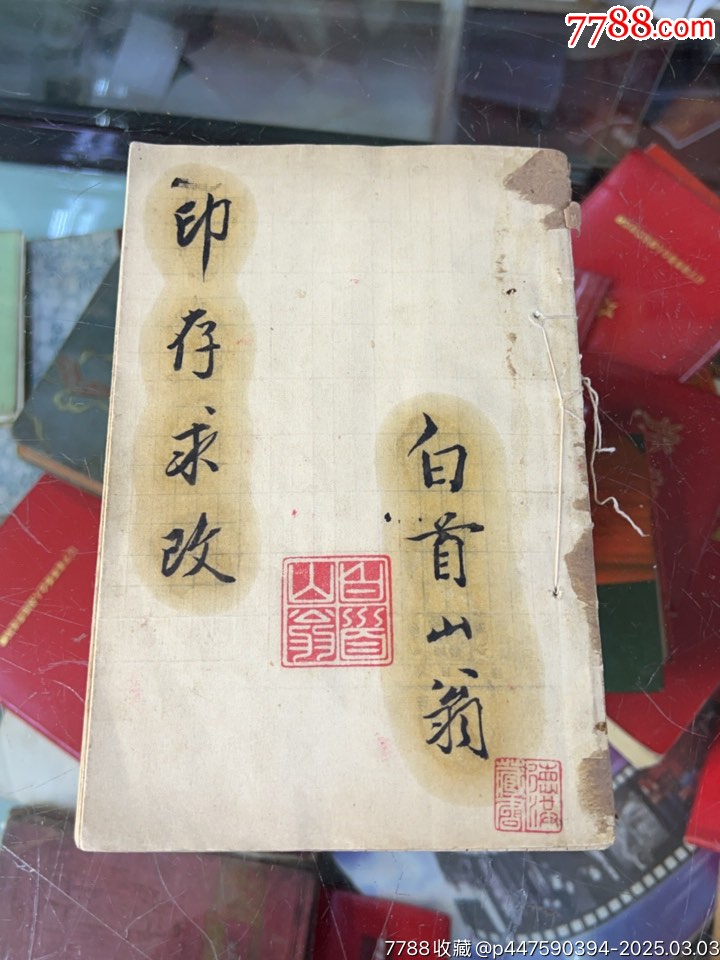 7788.com
白首山翁
印存求改
白首山翁
德滋藏书
7788收藏@p447590394-2025.03.03